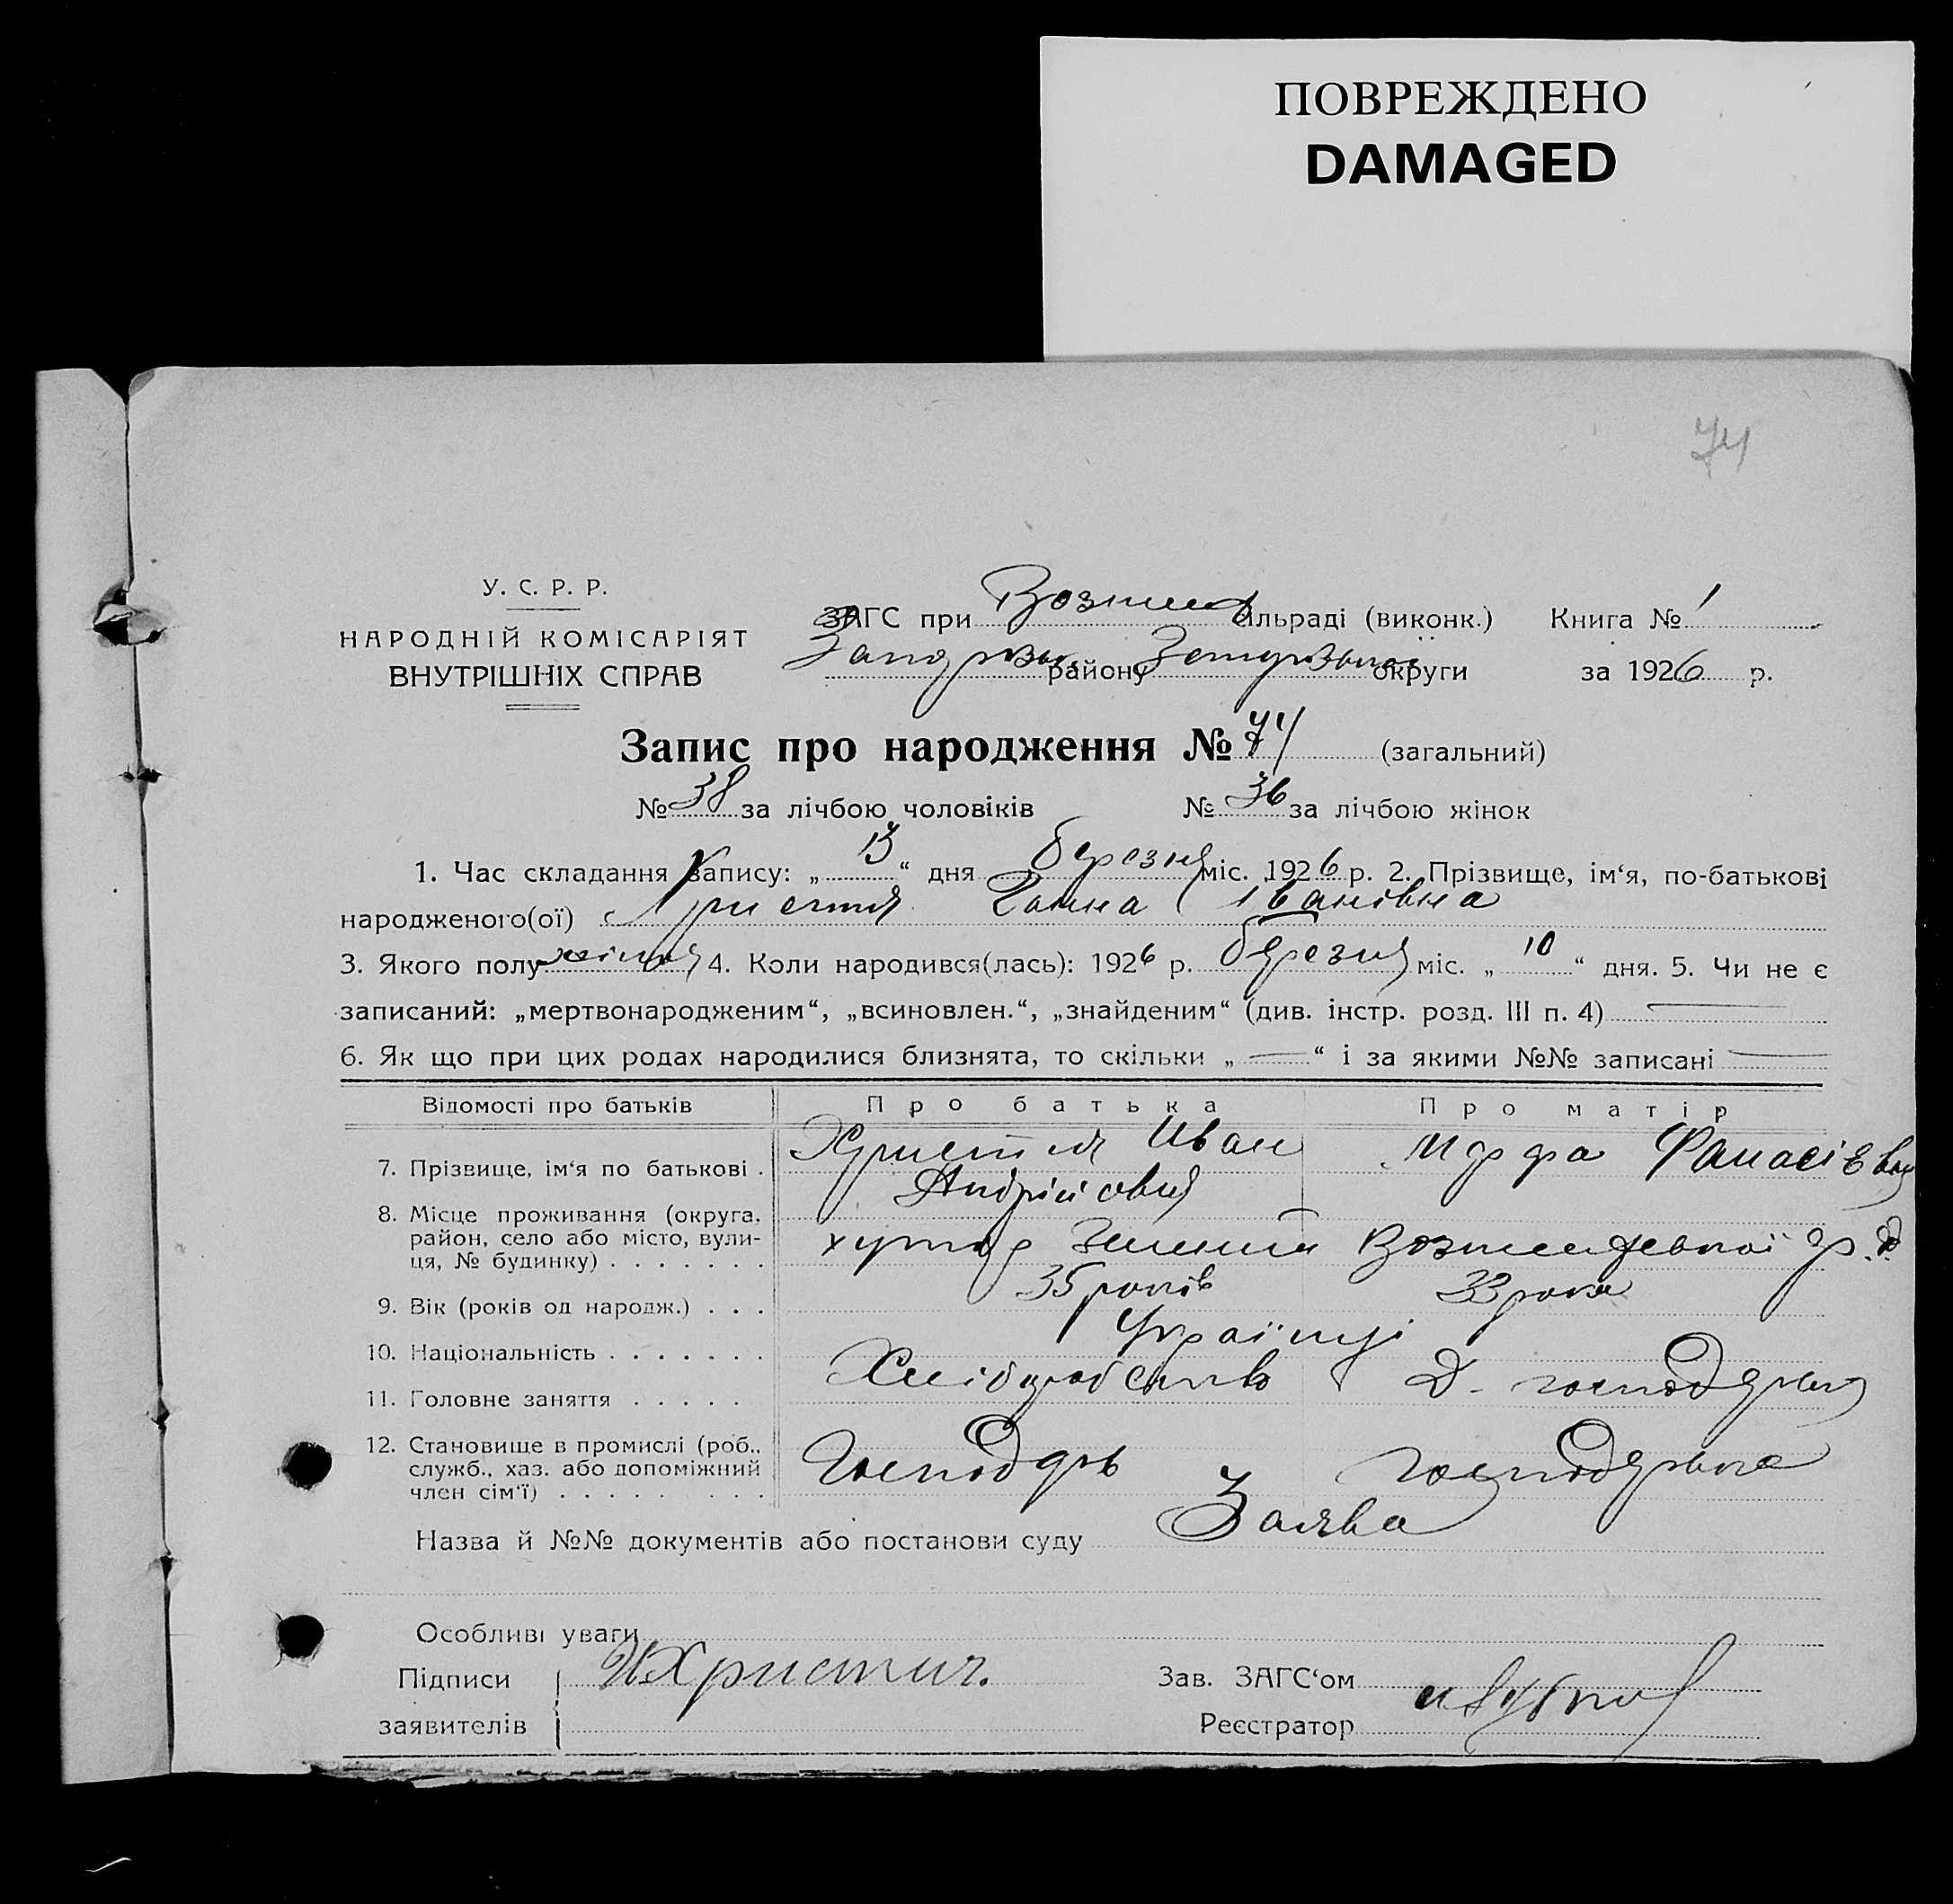 ПОВРЕЖДЕНО
DAMAGED
74
У. С. Р. Р.
НАРОДНІЙ КОМІСАРІЯТ
ВНУТРІШНІХ СПРАВ
ЗАГС при сільраді (виконк.) Книга № 1
району округи за 1926 р.
Запис про народження № 74 (загальний)
№ 38 за лічбою чоловіків № 36 за лічбою жінок
1. Час складання запису: „ 13 “ дня березня міс. 1926 р. 2. Прізвище, ім‘я, по-батькові
народженого(ої) Христич Ганна Іванівна
3. Якого полу 4. Коли народився(лась): 1926 р. березня міс. „ 10 “ дня. 5. Чи не є
записаний: „мертвонародженим“, „всиновлен.“, „знайденим“ (див. інстр. розд. III п. 4) —
6. Як що при цих родах народилися близнята, то скільки „ — “ і за якими №№ записані —
Відомості про батьків Про батька Про матір
7. Прізвище, ім‘я по батькові . Христич Иван Марфа Фанасівна
Андрійович
8. Місце проживання (округа,
район, село або місто, вули-
ця, № будинку) . . . . . . . хутор
9. Вік (років од народж.) . . . 35 років 33 роки
10. Національність . . . . . . . Українці
11. Головне заняття . . . . . Хліборобство Д.
12. Становище в промислі (роб.,
служб., хаз. або допоміжний
член сім‘ї) . . . . . . . . Господарь Господарька
Назва й №№ документів або постанови суду Заява
Особливі уваги
Підписи ИХристич. Зав. ЗАГС‘ом
заявителів Реєстратор